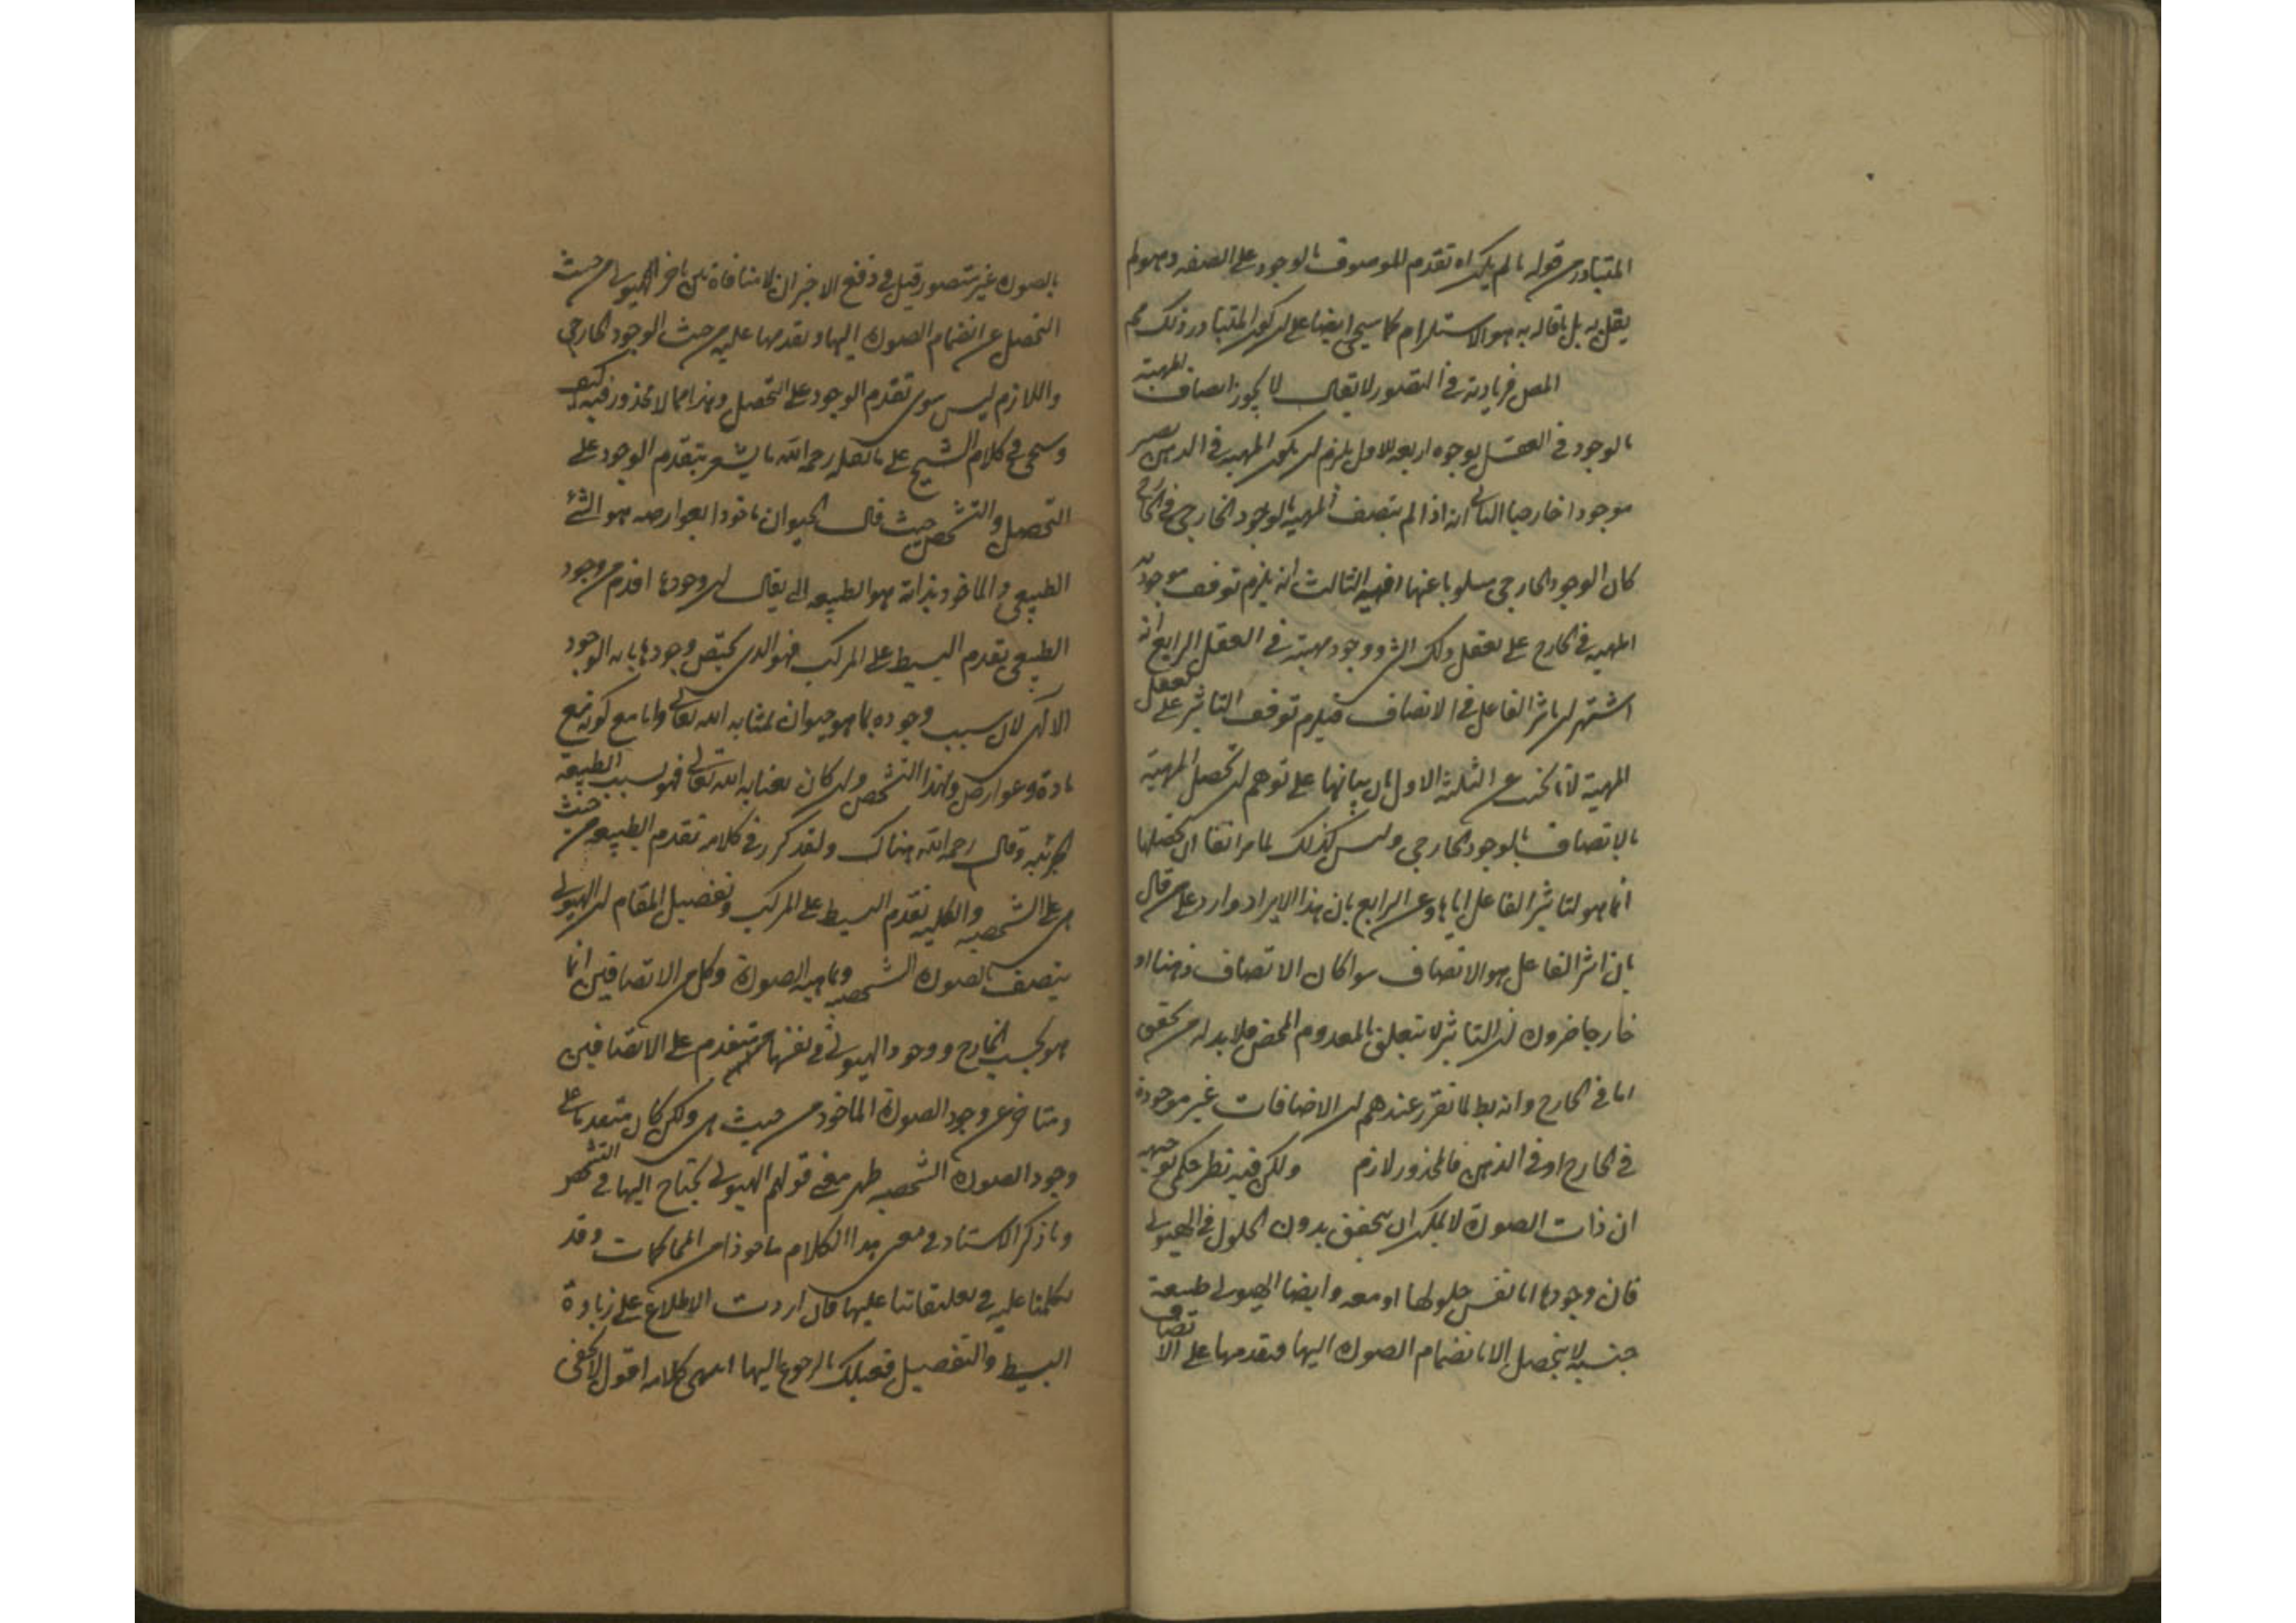 المتبادر من قوله ما لم يكن اه تقدم الموصوف بالوجود على الصفه وهو لم
يقل به بل ما قاله به هو الاستلزام كما سيجى ايضا على ان كون المتبادر ذلك مم
المص فزيادته فى التصور لا يقال لا يجوز اتصاف المهية
بالوجود فى العقل بوجوه اربعه الاول يلزم ان يكون المهيه فى الذهن
موجودا خارجيا الثانى انه اذا لم يتصف المهيه بالوجود الخارجى فى الخارج
كان الوجود الخارجى مسلوبا عنها فيه الثالث انه يلزم توقف موجودية
المهيه فى الخارج على تعقل ذلك الشى ووجود مهيته فى العقل الرابع انه
اشتهر ان تاثير الفاعل فى الاتصاف فيلزم توقف التاثير على تعقل
المهية لانا نجيب عن الثلثه الاول بان بيانها على توهم ان تحصل المهية
بالاتصاف بالوجود الخارجى وليس كذلك لما مر انفا ان تحصلها
انما هو لتاثير الفاعل اياها وعن الرابع بان هذا الايراد وارد على من قال
بان اثر الفاعل هو الاتصاف سوا كان الاتصاف ذهنا او
خارجا ضرورة ان التاثير لا يتعلق بالمعدوم المحض فلا بد له من تحقق
اما فى الخارج وانه بط لما تقرر عندهم ان الاضافات غير موجودة
فى الخارج او فى الذهن فالمحذور لازم ولكن فيه نظر حكمى توجيه
ان ذات الصورة لا يمكن ان يتحقق بدون الحلول فى الهيولى
فان وجودها اما نفس حلولها او معه وايضا الهيولى طبيعة
جنسيه لا يتحصل الا بانضمام الصورة اليها فتقدمها على الاتصاف
بالصورة غير متصور قيل فى دفع الاخير ان لا منافاة بين تاخر الهيولى من حيث
التحصل عن انضمام الصورة اليها وتقدمها عليه من حيث الوجود الخارجى
واللازم ليس سوى تقدم الوجود على التحصل وهذا مما لا محذور فيه كيف
وسيجى فى كلام الشيخ على ما نقله رحمه الله ما يشعر بتقدم الوجود على
التحصل والتشخص حيث قال الحيوان ماخوذا بعوارضه هو الشئ
الطبيعى والماخوذ بذاته هو الطبيعه التى يقال ان وجودها اقدم من وجود
الطبيعى بتقدم البسيط على المركب فهو الذى يختص وجودها بانه الوجود
الالهى لان سبب وجوده بما هو حيوان عنايه الله تعالى واما مع كونه مع
مادة وعوارض ولهذا التشخص وان كان بعنايه الله تعالى فهو بسبب الطبيعه
الجزئيه وقال رحمه الله هناك ولقد كرر فى كلامه تقدم الطبيعه من حيث
هى على الشخصيه والكليه تقدم البسيط على المركب وتفصيل المقام ان الهيولى
يتصف بالصورة الشخصيه وبماهيه الصورة وكل من الاتصافين انما
هو بحسب الخارج ووجود الهيولى فى نفسها متقدم على الاتصافين
ومتاخر عن وجود الصورة الماخوذ من حيث هى ولكن كان متقدما على
وجود الصورة الشخصيه ظهر معنى قولهم الهيولى يحتاج اليها فى التشخص
وما ذكر الاستاد فى معنى هذا الكلام ماخوذا من المحاكمات وقد
تكلمنا عليه فى تعليقاتنا عليها فان اردت الاطلاع على زيادة
البسط والتفصيل فعليك بالرجوع اليها انتهى كلامه اقول لا يخفى